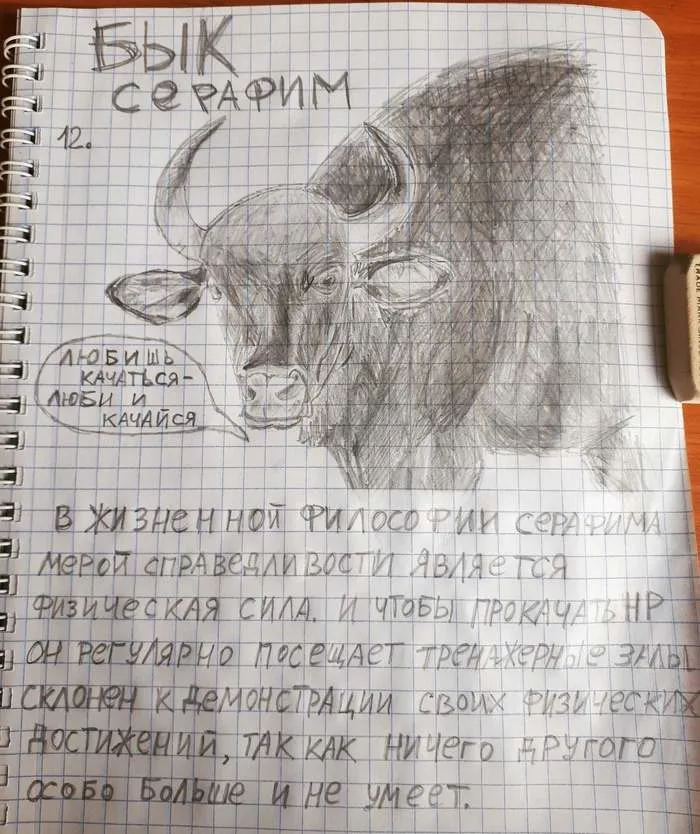 БЫК
СЕРАФИМ
12.
ЛЮБИШЬ
КАЧАТЬСЯ-
ЛЮБИ И
КАЧАЙСЯ
В ЖИЗНЕННОЙ ФИЛОСОФИИ СЕРАФИМА
МЕРОЙ СПРАВЕДЛИВОСТИ ЯВЛЯЕТСЯ
ФИЗИЧЕСКАЯ СИЛА. И ЧТОБЫ ПРОКАЧАТЬ HP
ОН РЕГУЛЯРНО ПОСЕЩАЕТ ТРЕНАЖЕРНЫЕ ЗАЛЫ
СКЛОНЕН К ДЕМОНСТРАЦИИ СВОИХ ФИЗИЧЕСКИХ
ДОСТИЖЕНИЙ, ТАК КАК НИЧЕГО ДРУГОГО
ОСОБО БОЛЬШЕ И НЕ УМЕЕТ.